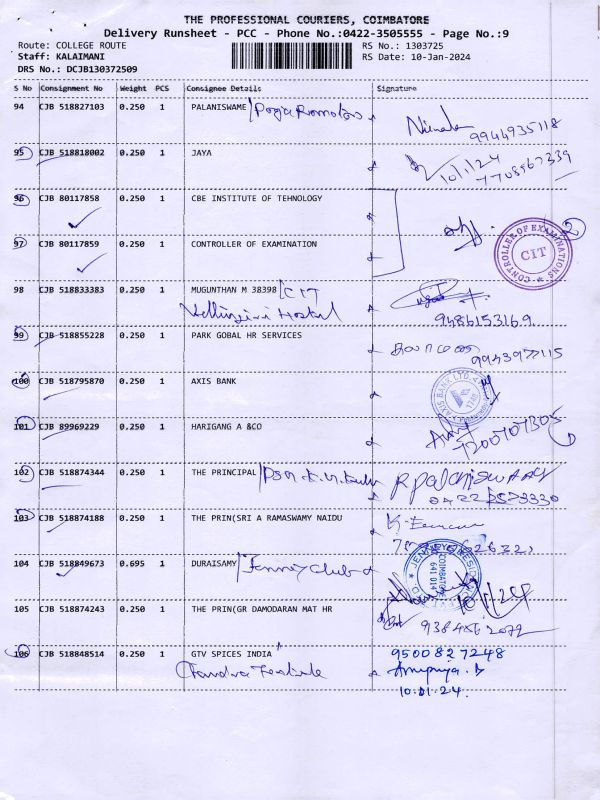 THE PROFESSIONAL COURIERS, COIMBATORE
Delivery Runsheet - PCC - Phone No.:0422-3505555 - Page No.:9
Route: COLLEGE ROUTE RS No.: 1303725
Staff: KALAIMANI RS Date: 10-Jan-2024
DRS No.: DCJB130372509
S No Consignment No Weight PCS Consignee Details Signature
94 CJB 518827103 0.250 1 PALANISWAME
9944935118
95 CJB 518818002 0.250 1 JAYA
10/1/24
7708567339
96 CJB 80117858 0.250 1 CBE INSTITUTE OF TEHNOLOGY
2
CONTROLLER OF EXAMINATIONS
CIT
97 CJB 80117859 0.250 1 CONTROLLER OF EXAMINATION
98 CJB 518833383 0.250 1 MUGUNTHAN M 38398 / CIT
Hostel
9486153169
99 CJB 518855228 0.250 1 PARK GOBAL HR SERVICES
9943977115
100 CJB 518795870 0.250 1 AXIS BANK
AXIS BANK LTD
101 CJB 89969229 0.250 1 HARIGANG A &CO
7200707305
102 CJB 518874344 0.250 1 THE PRINCIPAL
0422 2573330
103 CJB 518874188 0.250 1 THE PRIN(SRI A RAMASWAMY NAIDU
104 CJB 518849673 0.695 1 DURAISAMY / Jenney Club
COIMBATORE
641 014
10/1/24
105 CJB 518874243 0.250 1 THE PRIN(GR DAMODARAN MAT HR
106 CJB 518848514 0.250 1 GTV SPICES INDIA
Chandra Textile
9500827248
Anupriya. D
10.01.24.